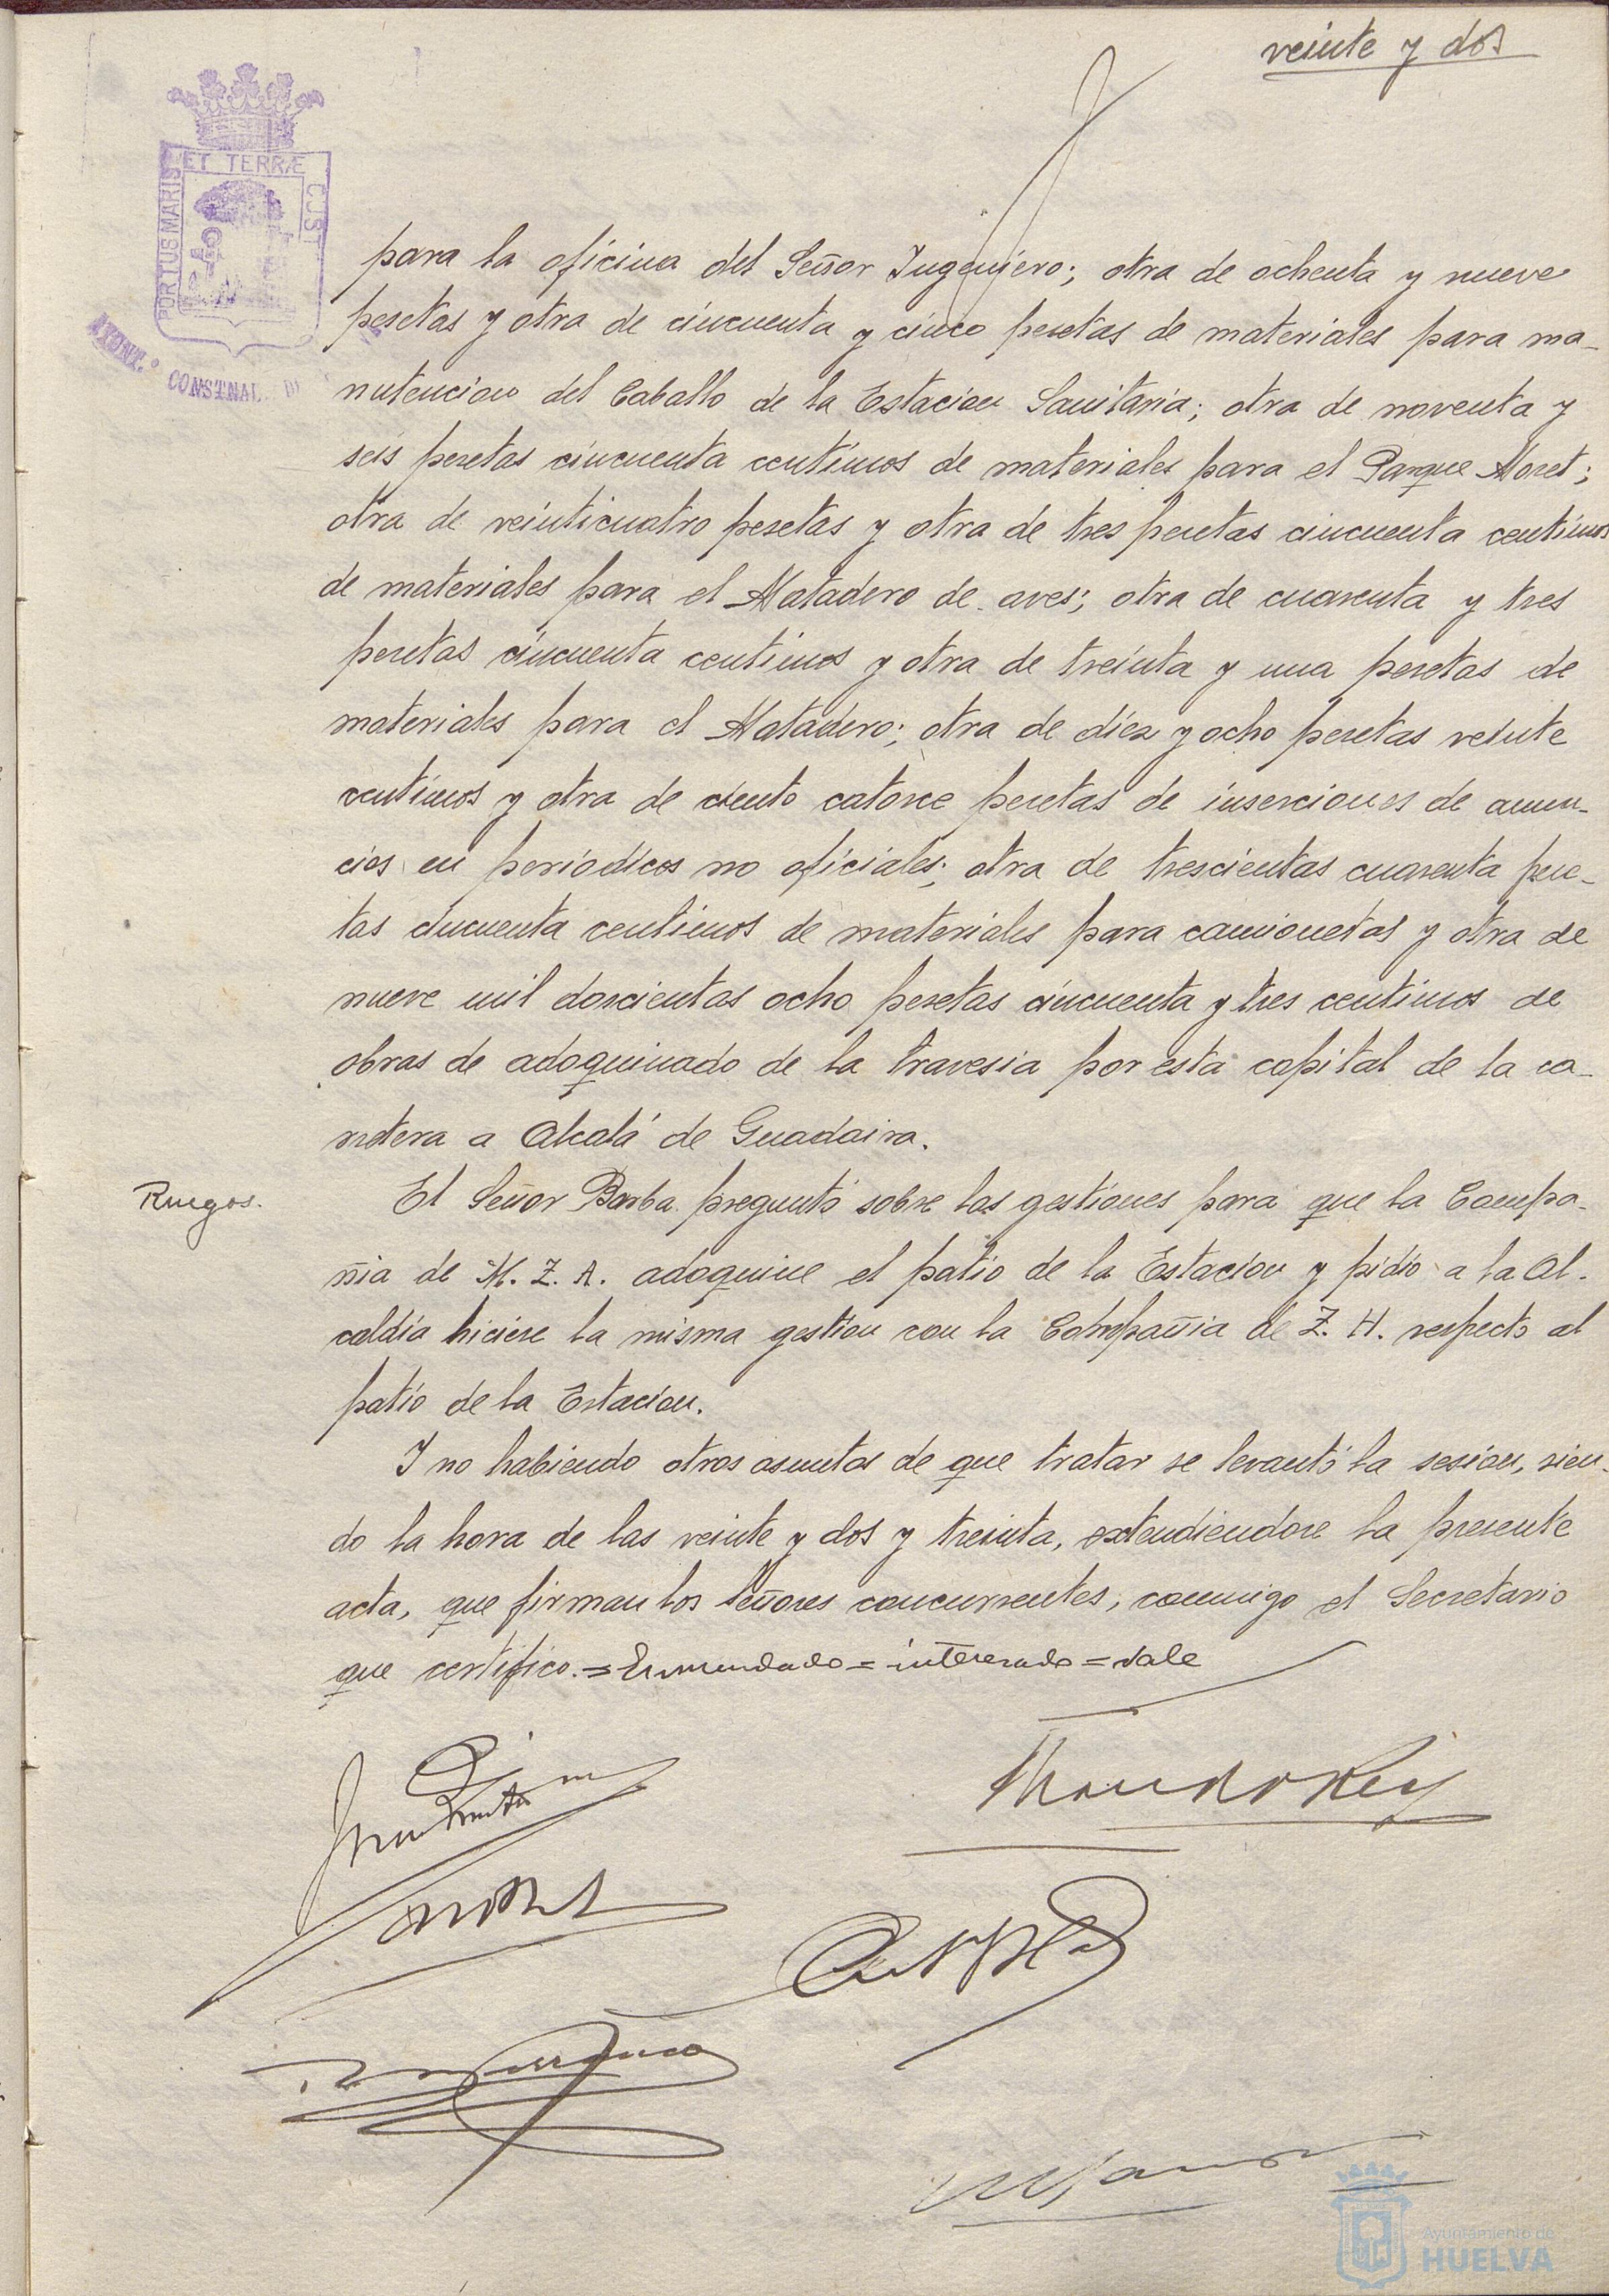 veinte y dos
PORTUS MARIS ET TERRÆ CUST
AYUNT.º CONSTNAL. DE
para la oficina del Señor Ingeniero; otra de ochenta y nueve
pesetas y otra de cincuenta y cinco pesetas de materiales para ma-
nutencion del Caballo de la Estacion Sanitaria; otra de noventa y
seis pesetas cincuenta centimos de materiales para el Parque Moret;
otra de veinticuatro pesetas y otra de tres pesetas cincuenta centimos
de materiales para el Matadero de aves; otra de cuarenta y tres
pesetas cincuenta centimos y otra de treinta y una pesetas de
materiales para el Matadero; otra de diez y ocho pesetas veinte
centimos y otra de ciento catorce pesetas de inserciones de anun-
cios en periodicos no oficiales; otra de trescientas cuarenta pese-
tas cincuenta centimos de materiales para camionetas y otra de
nueve mil doscientas ocho pesetas cincuenta y tres centimos de
obras de adoquinado de la travesia por esta capital de la ca-
rretera a Alcalá de Guadaira.
Ruegos.
El Señor Barba preguntó sobre las gestiones para que la Compa-
ñia de M. Z. A. adoquine el patio de la Estacion y pidió a la Al-
caldia hiciese la misma gestion con la Compañia de Z. H. respecto al
patio de la Estacion.
Y no habiendo otros asuntos de que tratar se levantó la sesion, sien-
do la hora de las veinte y dos y treinta, extendiendose la presente
acta, que firman los señores concurrentes, conmigo el Secretario
que certifico.=Enmendado=interesado=Vale
Ayuntamiento de
HUELVA